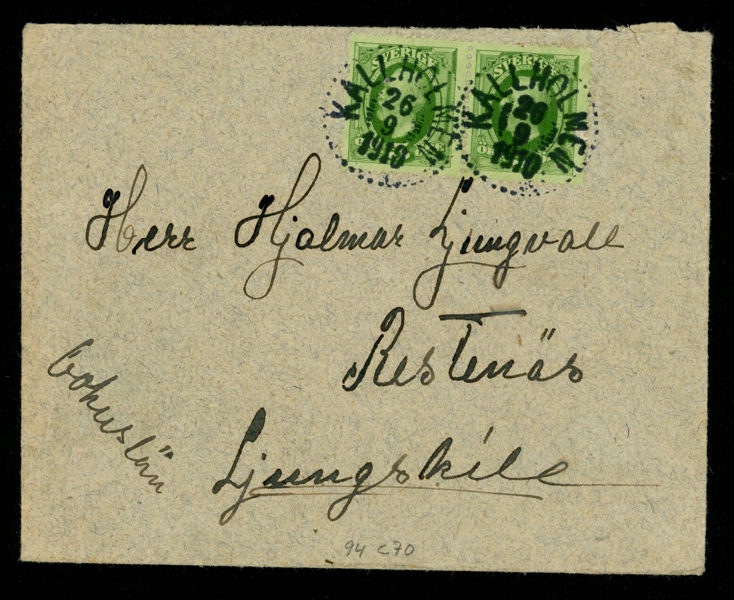 SVERIGE SVERIGE
KALLHOLMEN
26
9
1910
KALLHOLMEN
26
9
1910
Herr Hjalmar Ljungvall
Restenäs
Ljungskile
bohuslän
94 C70